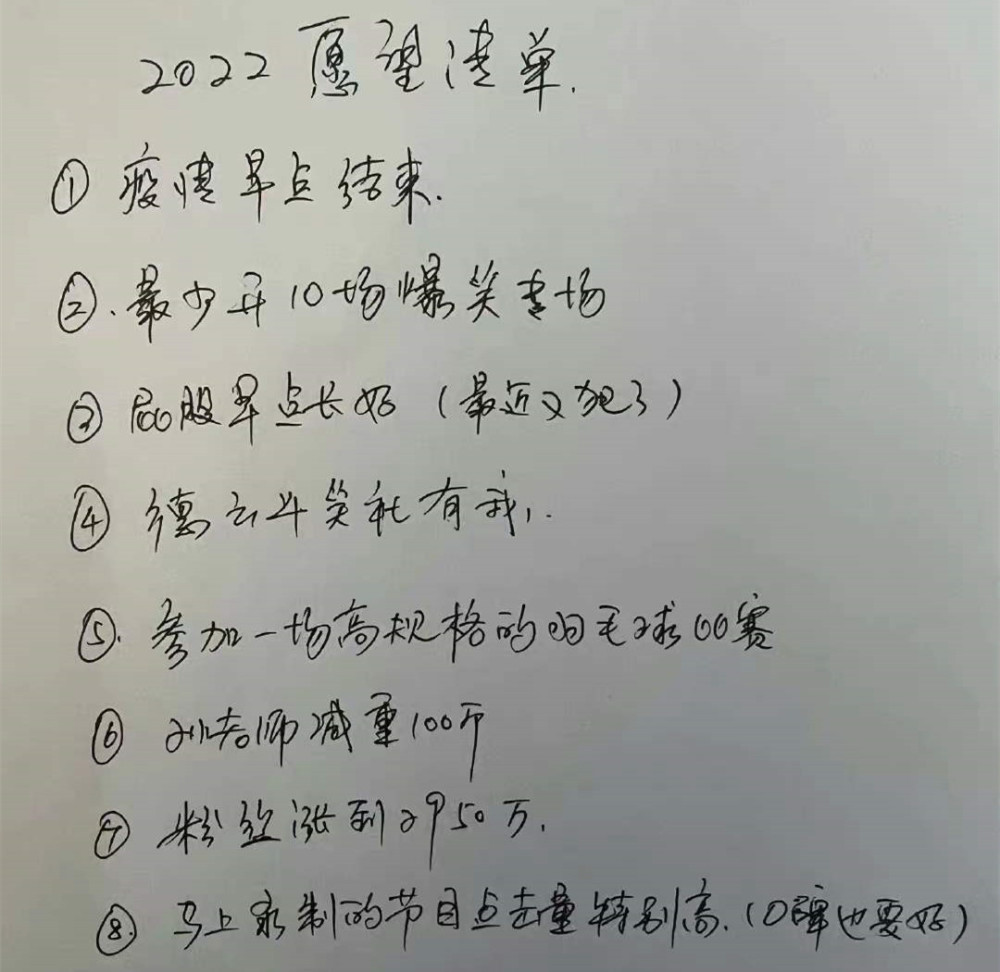 2022愿望清单.
① 疫情早点结束.
②.最少开10场爆笑专场
③ 屁股早点长好（最近又犯了）
④ 德云斗笑社有我,.
⑤.参加一场高规格的羽毛球比赛
⑥ 孙老师减重100斤
⑦ 粉丝涨到2950万.
⑧.马上录制的节目点击量特别高.（口碑也要好）